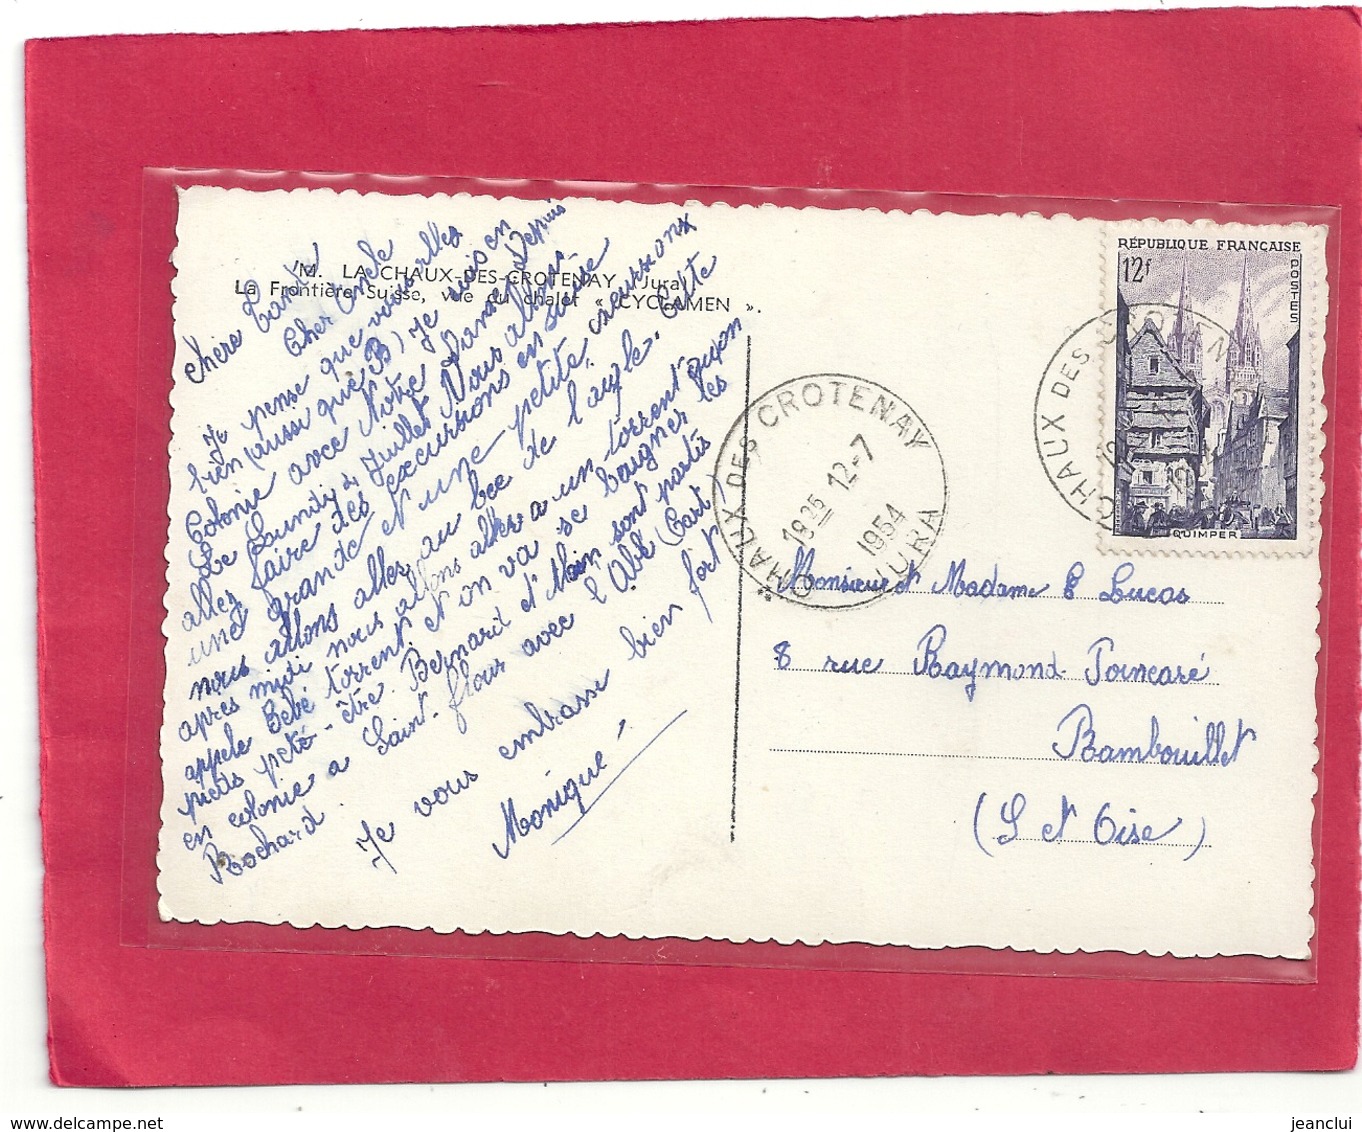 M. LA CHAUX-DES-CROTENAY (Jura)
La Frontière Suisse, vue du chalet « CYCLAMEN ».
Chère Tante
Cher Oncle
Je pense que vous allez
bien (aussi que B) Je suis en
Colonie avec Notre Dame depuis
le Lundi 2 Juillet Nous allons
aller faire des excursions en Suisse
une grande et une petite excursions
nous allons aller au bec de l'aigle. Cette
après midi nous allons aller a un torrent qu'on
appele Bébé torrent et on va se baigner les
pieds peté-être. Bernard et Alain sont partis
en colonie a Saint-flour avec l'Abbé Cart
Rochard
Je vous embrasse bien fort
Monique
RÉPUBLIQUE FRANÇAISE
12f
POSTES
QUIMPER
CHAUX DES CROTENAY
18 25 12-7
1954
JURA
Monsieur et Madame E Lucas
8 rue Raymond-Poincaré
Rambouillet
(S et Oise)
jeanclui